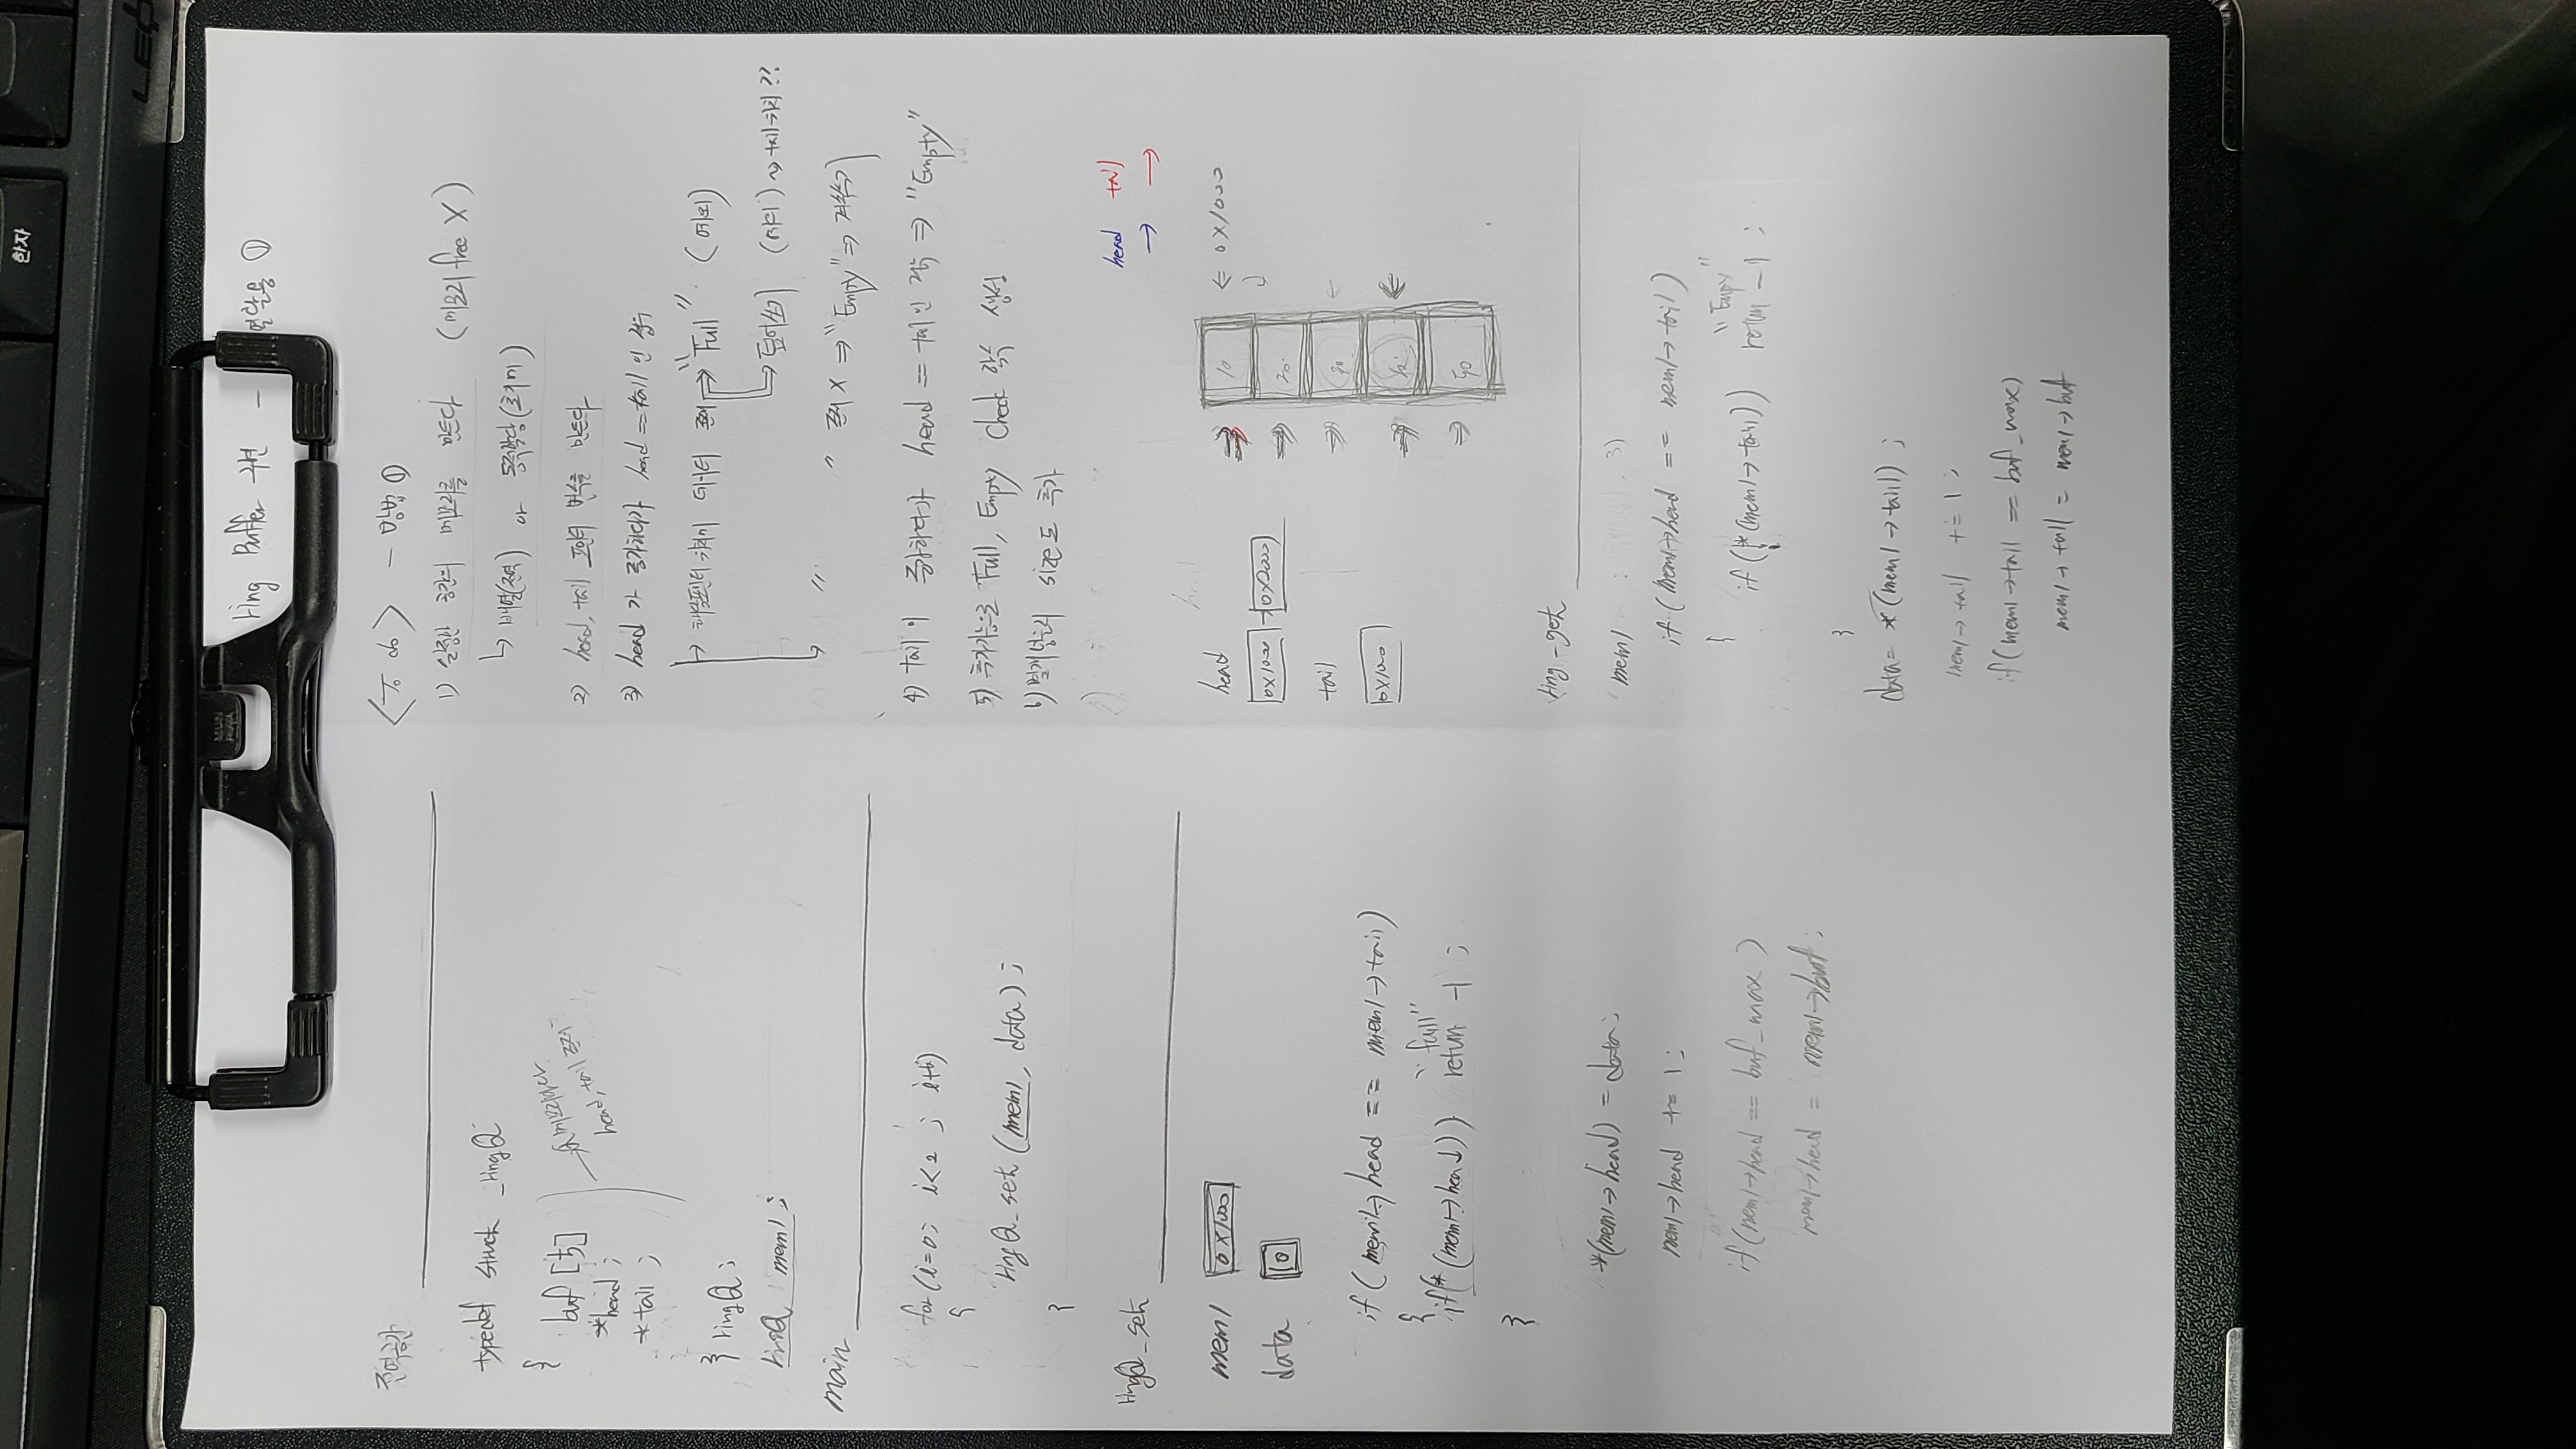 한자
ring Buffer 구현 - 열활용 ①
전역공간
typedef struct _ringQ
{
buf [5]
*head ;
*tail ;
→ 각 메모리마다
head, tail 존재
} ringQ ;
ringQ mem1 ;
main
for (i=0; i<2 ; i++)
{
ringQ_set (mem1, data) ;
}
ringQ_set
mem1 0x1000
data 10
if ( mem1→head == mem1→tail)
{
"full"
if(*(mem1→head)) return -1 ;
}
*(mem1→head) = data;
mem1→head += 1 ;
if(mem1→head == buf_max )
mem1→head = mem1→buf ;
<To do> - 방법 ①
1) 일정한 공간의 메모리를 만든다 (메모리 free X)
↳ 배열(전역) or 동적할당(초기에)
2) head, tail 포인터 변수를 만든다
3) head 가 증가하다가 head == tail 인 경우
→ 테일포인터 위치에 데이터 존재 → "Full" (예외)
→ 덮어쓰기 ⇝ tail 위치 ??
→ " " 존재 X ⇒ "Empty" ⇒ 계속쓰기
4) tail 이 증가하다가 head == tail인 경우 ⇒ "Empty"
5) 추가기능으로 Full, Empty Check 함수 생성
6) 몇개 넣을지 size도 추가
head tail
→ →
head
0x1000 → 0x2000
tail
0x1000
10 ← 0x1000
20
30
40
50
ring_get
mem1
if ( mem1→head == mem1→tail)
{
"Empy"
if (!*(mem1→tail)) return -1 ;
}
data= *(mem1→tail) ;
mem1→tail += 1 ;
if(mem1→tail == buf_max)
mem1→tail = mem1→buf